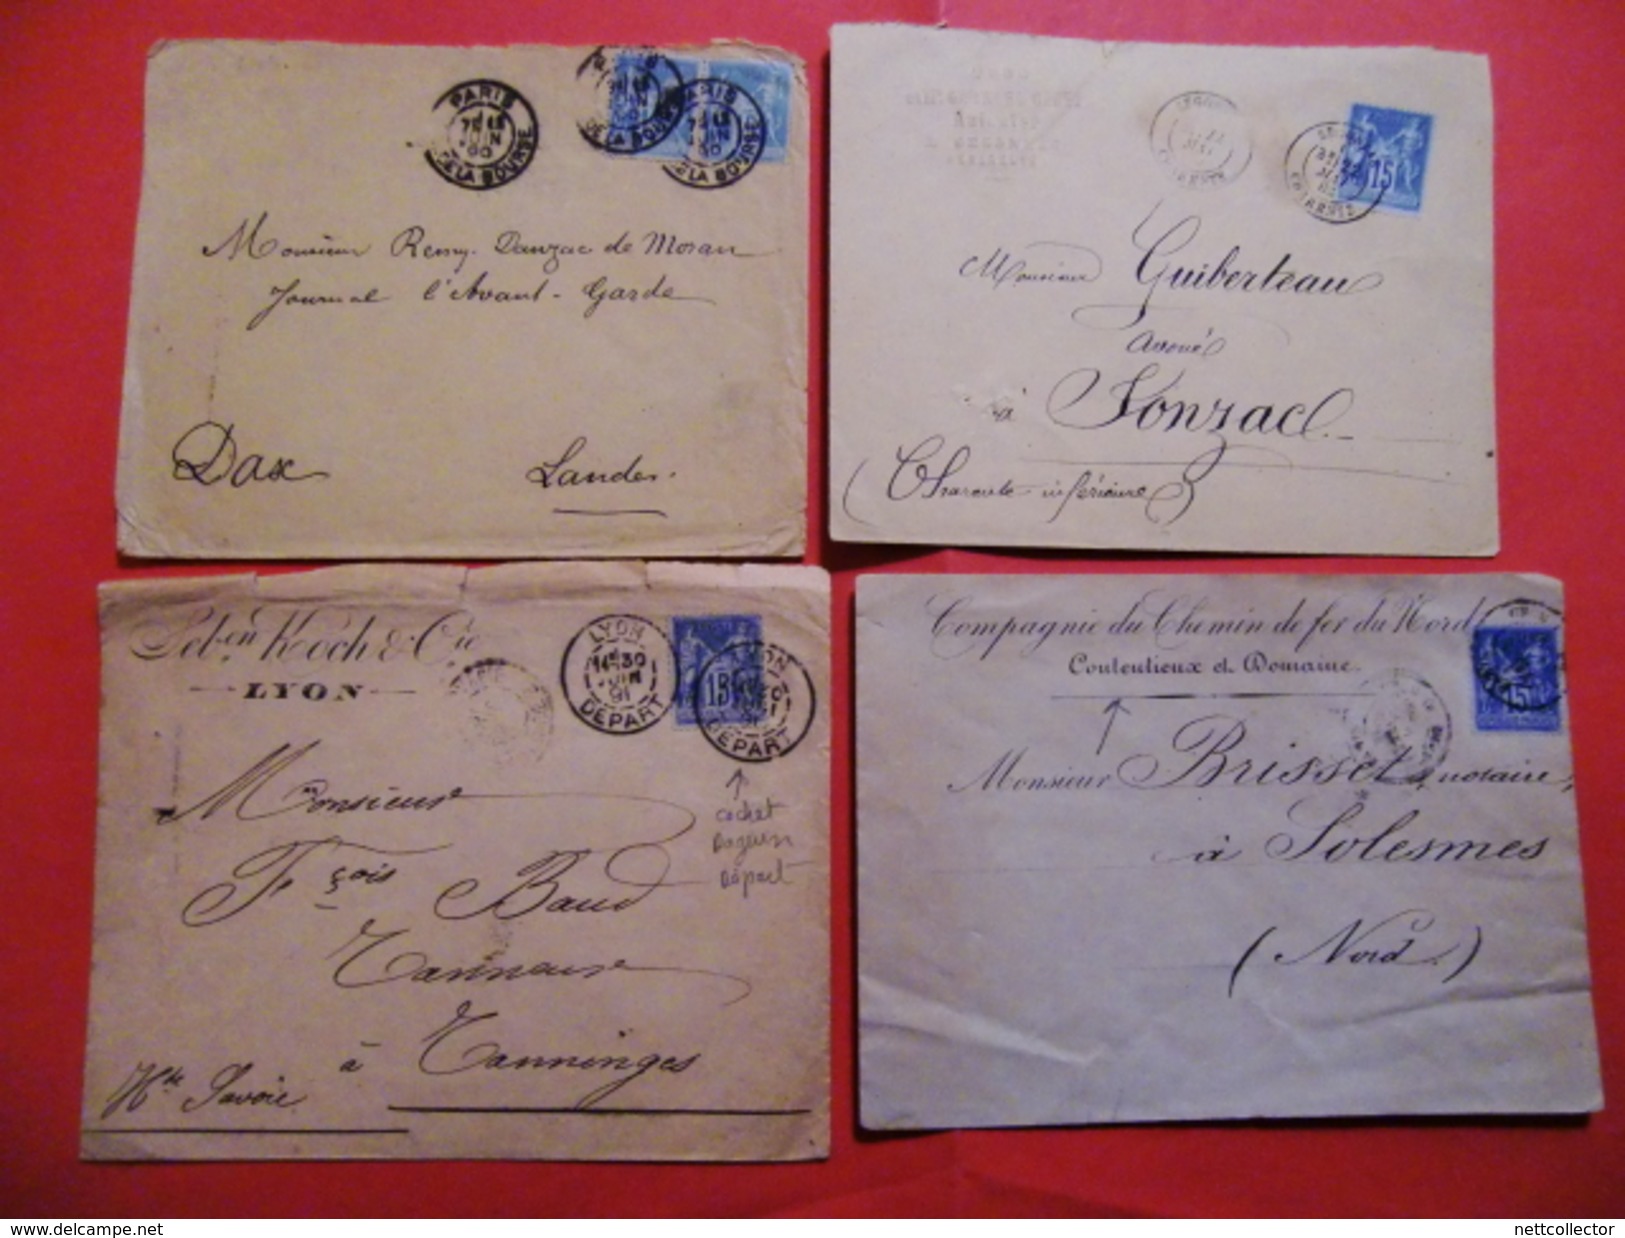 PARIS
7E 15
JUIN
90
DE LA BOURSE
PARIS
JUIN
90
DE LA BOURSE
Monsieur Remy Danzac de Moran
Journal l'Avant-Garde
Dax Landes.
CHARENTE
CHARENTE
15
Monsieur Guiberteau
avoué
à Jonzac
(Charente inférieure)
Seb.en Koch & Cie
LYON
LYON
JUIN
91
DEPART
15
DEPART
cachet
Daguin
Départ
Monsieur
Fçois Baud
Tanneur
à Tanninges
Hte Savoie
Compagnie du Chemin de fer du Nord
Contentieux et Domaine.
15
Monsieur Brisset, notaire,
à Solesmes
(Nord)
www.delcampe.net
nettcollector